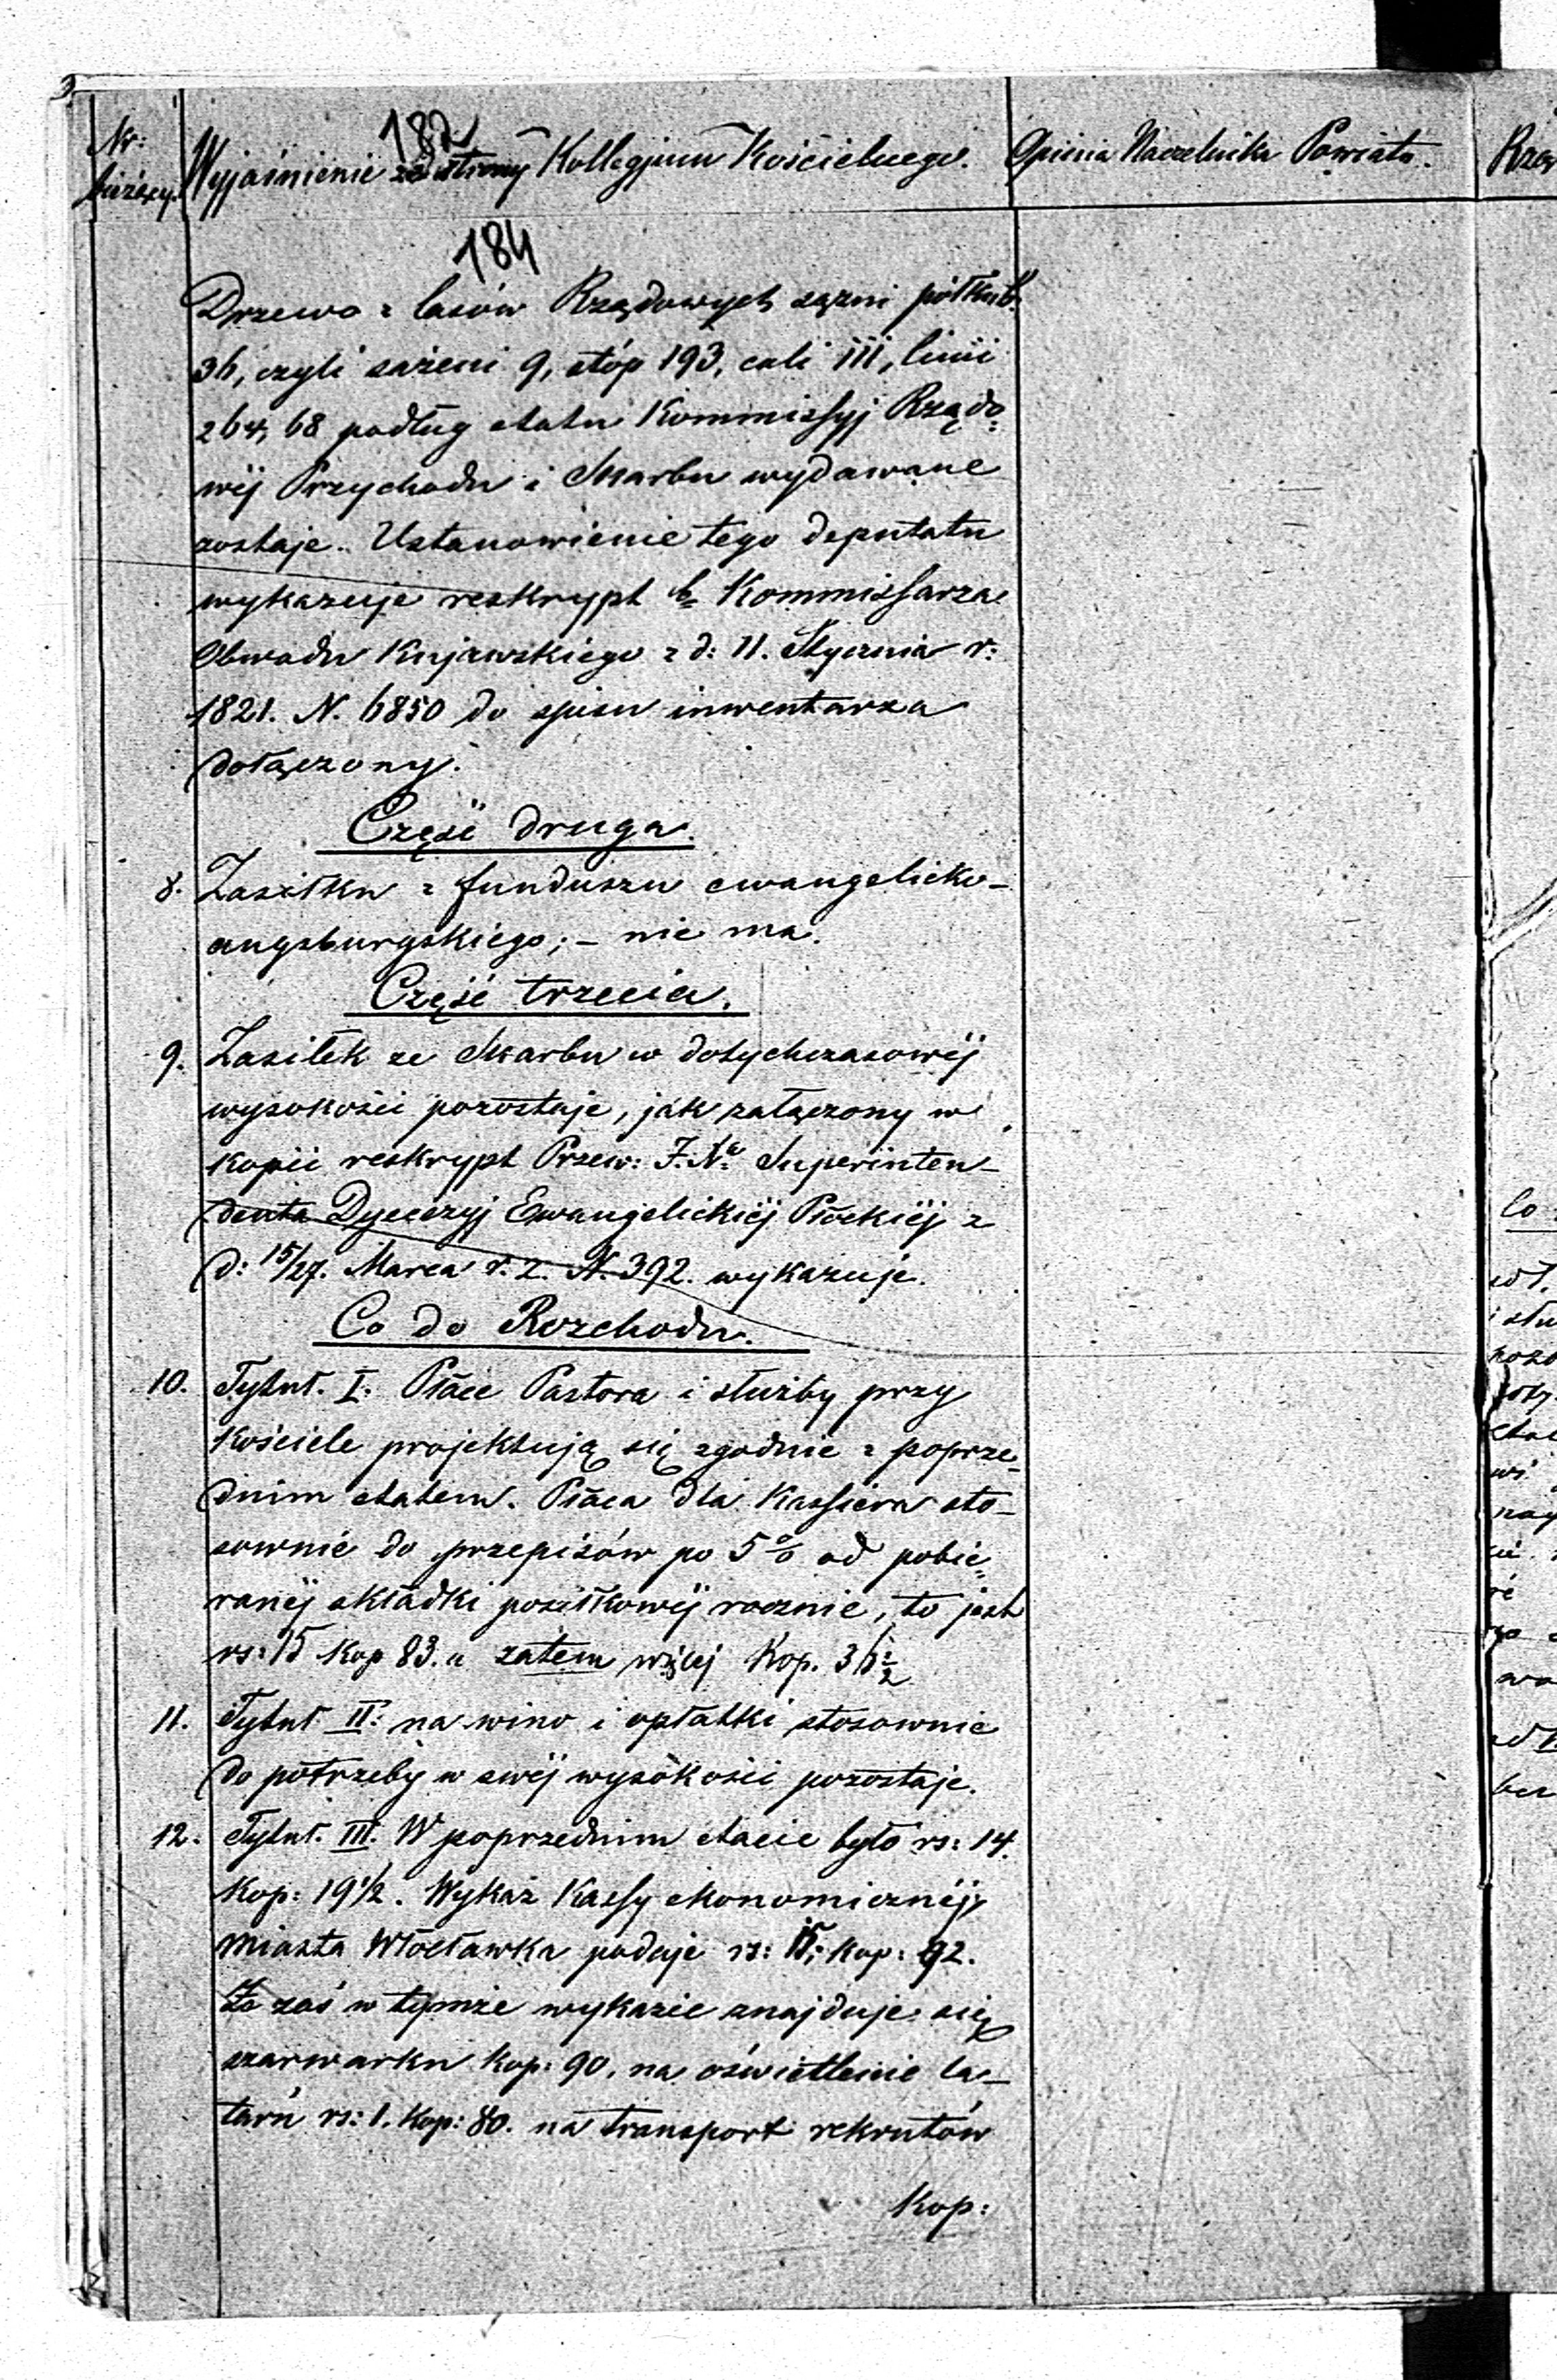 182
Nr: bieżący.
Wyjaśnienie ze strony Kollegjum Kościelnego.
Opinia Naczelnika Powiatu.
184
Drzewo z lasów Rządowych sążni półkub.
36, czyli sążeni 9, stóp 193, cali 111, linii
264,68 podług etatu Kommissyj Rządo=
wéj Przychodu i Skarbu wydawane
zostaje. Ustanowienie tego deputatu
wykazuje reskrypt b. Kommissarza
Obwodu Kujawskiego z d: 11. Stycznia r:
1821. N. 6850 do spisu inwentarza
dołączony.
Część druga.
8. Zasiłku z funduszu ewangelicko-
augsburgskiego; - nie ma.
Część trzecia.
9. Zasiłek ze Skarbu w dotychczasowéj
wysokości pozostaje, jak załączony w
kopii reskrypt Przew: J. Superinten-
denta Dyecezyj Ewangelickiéj Płockiéj z
d: 15/27. Marca r. z. N. 392. wykazuje.
Co do Rozchodu.
10. Tytuł. I: Płace Pastora i służby przy
Kościele projektują się zgodnie z poprze-
dnim etatem. Płaca dla Kassiera sto-
sownie do przepisów po 5% od pobie=
ranéj składki posiłkowéj rocznie, to jest
rs: 15 Kop 83. " zatem więcej Kop. 36 1/2
11. Tytuł II: na wino i opłatki stosownie
do potrzeby w swéj wysokości pozostaje.
12. Tytuł. III. W poprzednim etacie było rs: 14.
Kop: 19 1/2. Wykaz Kassy ekonomicznéj
miasta Włocławka podaje rs: 15, Kop: 92.
Że zaś w tymże wykazie znajduje się
szarwarku Kop: 90. na oświetlenie la-
tarń rs: 1. Kop: 80. na transport rekrutów
Kop: